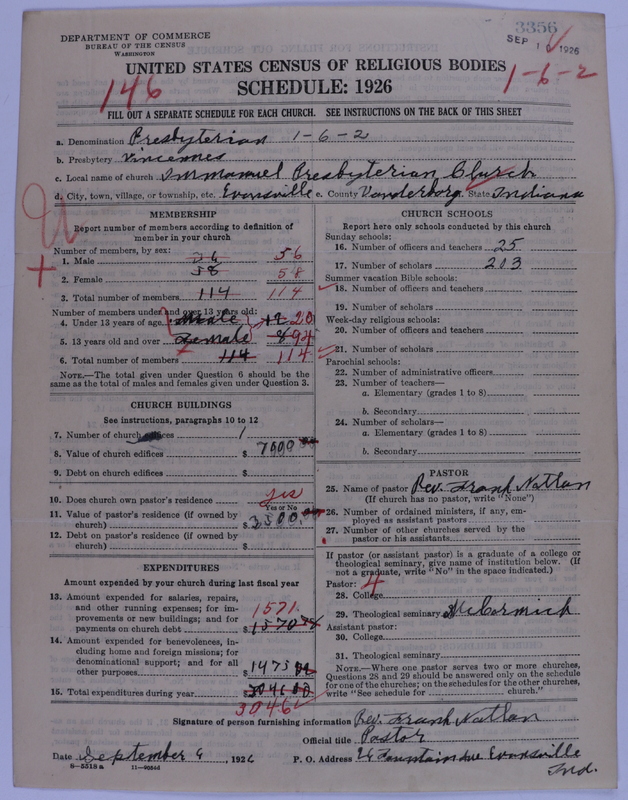 3356
DEPARTMENT OF COMMERCE
BUREAU OF THE CENSUS
WASHINGTON
SEP 1 1926
UNITED STATES CENSUS OF RELIGIOUS BODIES
1-6-2
146
SCHEDULE: 1926
FILL OUT A SEPARATE SCHEDULE FOR EACH CHURCH. SEE INSTRUCTIONS ON THE BACK OF THIS SHEET
a. Denomination Presbyterian 1-6-2
b. Presbytery Vincennes
c. Local name of church Immanuel Presbyterian Church
d. City, town, village, or township, etc. Evansville e. County Vanderburg State Indiana
MEMBERSHIP
Report number of members according to definition of
member in your church
Number of members, by sex:
1. Male 56 56
2. Female 58 58
3. Total number of members 114 114
Number of members under and over 13 years old:
4. Under 13 years of age Male 12 20
5. 13 years old and over Female 8 94
6. Total number of members 114 114
NOTE.—The total given under Question 6 should be the
same as the total of males and females given under Question 3.
CHURCH BUILDINGS
See instructions, paragraphs 10 to 12
7. Number of church edifices 1
8. Value of church edifices $ 7000 00
9. Debt on church edifices $
10. Does church own pastor's residence yes
Yes or No
11. Value of pastor's residence (if owned by
church) $ 3500.00
12. Debt on pastor's residence (if owned by
church) $
EXPENDITURES
Amount expended by your church during last fiscal year
13. Amount expended for salaries, repairs,
and other running expenses; for im-
provements or new buildings; and for
payments on church debt $ 1570 1571.
14. Amount expended for benevolences, in-
cluding home and foreign missions; for
denominational support; and for all
other purposes $ 1475
15. Total expenditures during year $ 3046
3046
CHURCH SCHOOLS
Report here only schools conducted by this church
Sunday schools:
16. Number of officers and teachers 25
17. Number of scholars 203
Summer vacation Bible schools:
18. Number of officers and teachers
19. Number of scholars
Week-day religious schools:
20. Number of officers and teachers
21. Number of scholars
Parochial schools:
22. Number of administrative officers
23. Number of teachers—
a. Elementary (grades 1 to 8)
b. Secondary
24. Number of scholars—
a. Elementary (grades 1 to 8)
b. Secondary
PASTOR
25. Name of pastor Rev. Frank Nathan
(If church has no pastor, write "None")
26. Number of ordained ministers, if any, em-
ployed as assistant pastors
27. Number of other churches served by the
pastor or his assistants
If pastor (or assistant pastor) is a graduate of a college or
theological seminary, give name of institution below. (If
not a graduate, write "No" in the space indicated.)
Pastor: 4
28. College
29. Theological seminary McCormick
Assistant pastor:
30. College
31. Theological seminary
NOTE.—Where one pastor serves two or more churches,
Questions 28 and 29 should be answered only on the schedule
for one of the churches; on the schedules for the other churches,
write "See schedule for church."
Signature of person furnishing information Rev. Frank Nathan
Official title Pastor
Date September 9, 1926 P. O. Address Fountain Ave Evansville
Ind.
8-5518 a 11-90546